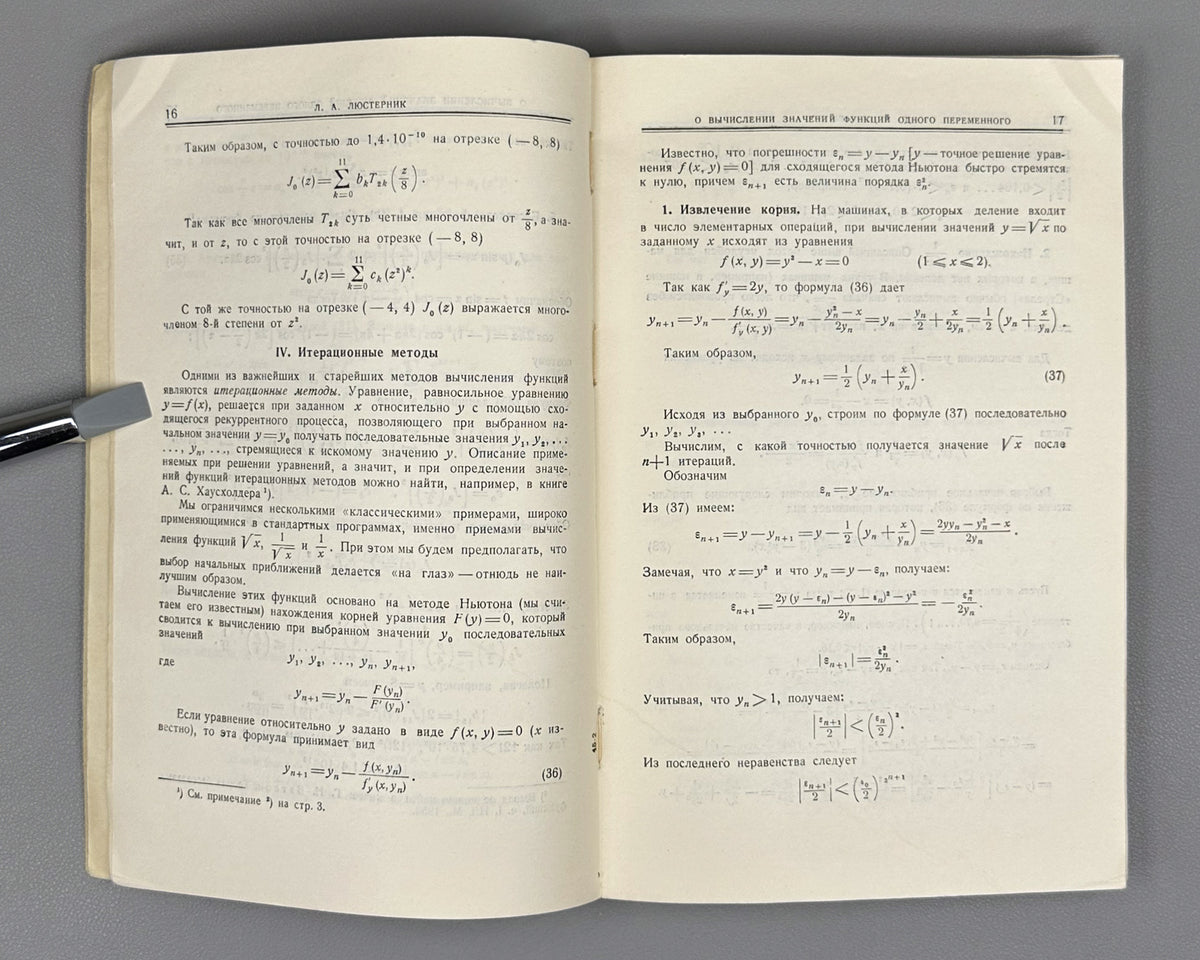 16
Л. А. ЛЮСТЕРНИК
Таким образом, с точностью до 1,4·10⁻¹⁰ на отрезке (—8, 8)
J₀(z)=∑_{k=0}^{11} b_k T_{2k}(z/8).
Так как все многочлены T_{2k} суть четные многочлены от z/8, а зна-
чит, и от z, то с этой точностью на отрезке (—8, 8)
J₀(z)=∑_{k=0}^{11} c_k(z²)^k.
С той же точностью на отрезке (—4, 4) J₀(z) выражается много-
членом 8-й степени от z².
IV. Итерационные методы
Одними из важнейших и старейших методов вычисления функций
являются итерационные методы. Уравнение, равносильное уравнению
y=f(x), решается при заданном x относительно y с помощью схо-
дящегося рекуррентного процесса, позволяющего при выбранном на-
чальном значении y=y₀ получать последовательные значения y₁, y₂, ...
..., yₙ, ..., стремящиеся к искомому значению y. Описание приме-
няемых при решении уравнений, а значит, и при определении значе-
ний функций итерационных методов можно найти, например, в книге
А. С. Хаусхолдера¹).
Мы ограничимся несколькими «классическими» примерами, широко
применяющимися в стандартных программах, именно приемами вычис-
ления функций √x, 1/√x и 1/x. При этом мы будем предполагать, что
выбор начальных приближений делается «на глаз» — отнюдь не наи-
лучшим образом.
Вычисление этих функций основано на методе Ньютона (мы счи-
таем его известным) нахождения корней уравнения F(y)=0, который
сводится к вычислению при выбранном значении y₀ последовательных
значений
y₁, y₂, ..., yₙ, yₙ₊₁,
где
yₙ₊₁=yₙ — F(yₙ)/F′(yₙ).
Если уравнение относительно y задано в виде f(x, y)=0 (x из-
вестно), то эта формула принимает вид
yₙ₊₁=yₙ — f(x, yₙ)/f′_y(x, yₙ). (36)
¹) См. примечание ²) на стр. 3.
О ВЫЧИСЛЕНИИ ЗНАЧЕНИЙ ФУНКЦИЙ ОДНОГО ПЕРЕМЕННОГО 17
Известно, что погрешности εₙ=y—yₙ [y—точное решение урав-
нения f(x, y)=0] для сходящегося метода Ньютона быстро стремятся
к нулю, причем εₙ₊₁ есть величина порядка εₙ².
1. Извлечение корня. На машинах, в которых деление входит
в число элементарных операций, при вычислении значений y=√x по
заданному x исходят из уравнения
f(x, y)=y²—x=0 (1⩽x⩽2).
Так как f′_y=2y, то формула (36) дает
yₙ₊₁=yₙ — f(x, y)/f′_y(x, y)=yₙ — (yₙ²—x)/2yₙ=yₙ — yₙ/2 + x/2yₙ = 1/2 (yₙ + x/yₙ).
Таким образом,
yₙ₊₁=1/2 (yₙ + x/yₙ). (37)
Исходя из выбранного y₀, строим по формуле (37) последовательно
y₁, y₂, y₃, ...
Вычислим, с какой точностью получается значение √x после
n+1 итераций.
Обозначим
εₙ=y—yₙ.
Из (37) имеем:
εₙ₊₁=y—yₙ₊₁=y—1/2 (yₙ + x/yₙ)=(2yyₙ—yₙ²—x)/2yₙ.
Замечая, что x=y² и что yₙ=y—εₙ, получаем:
εₙ₊₁=(2y(y—εₙ)—(y—εₙ)²—y²)/2yₙ=—εₙ²/2yₙ.
Таким образом,
|εₙ₊₁|=εₙ²/2yₙ.
Учитывая, что yₙ>1, получаем:
|εₙ₊₁/2|<(εₙ/2)².
Из последнего неравенства следует
|εₙ₊₁/2|<(ε₀/2)^{2^{n+1}}